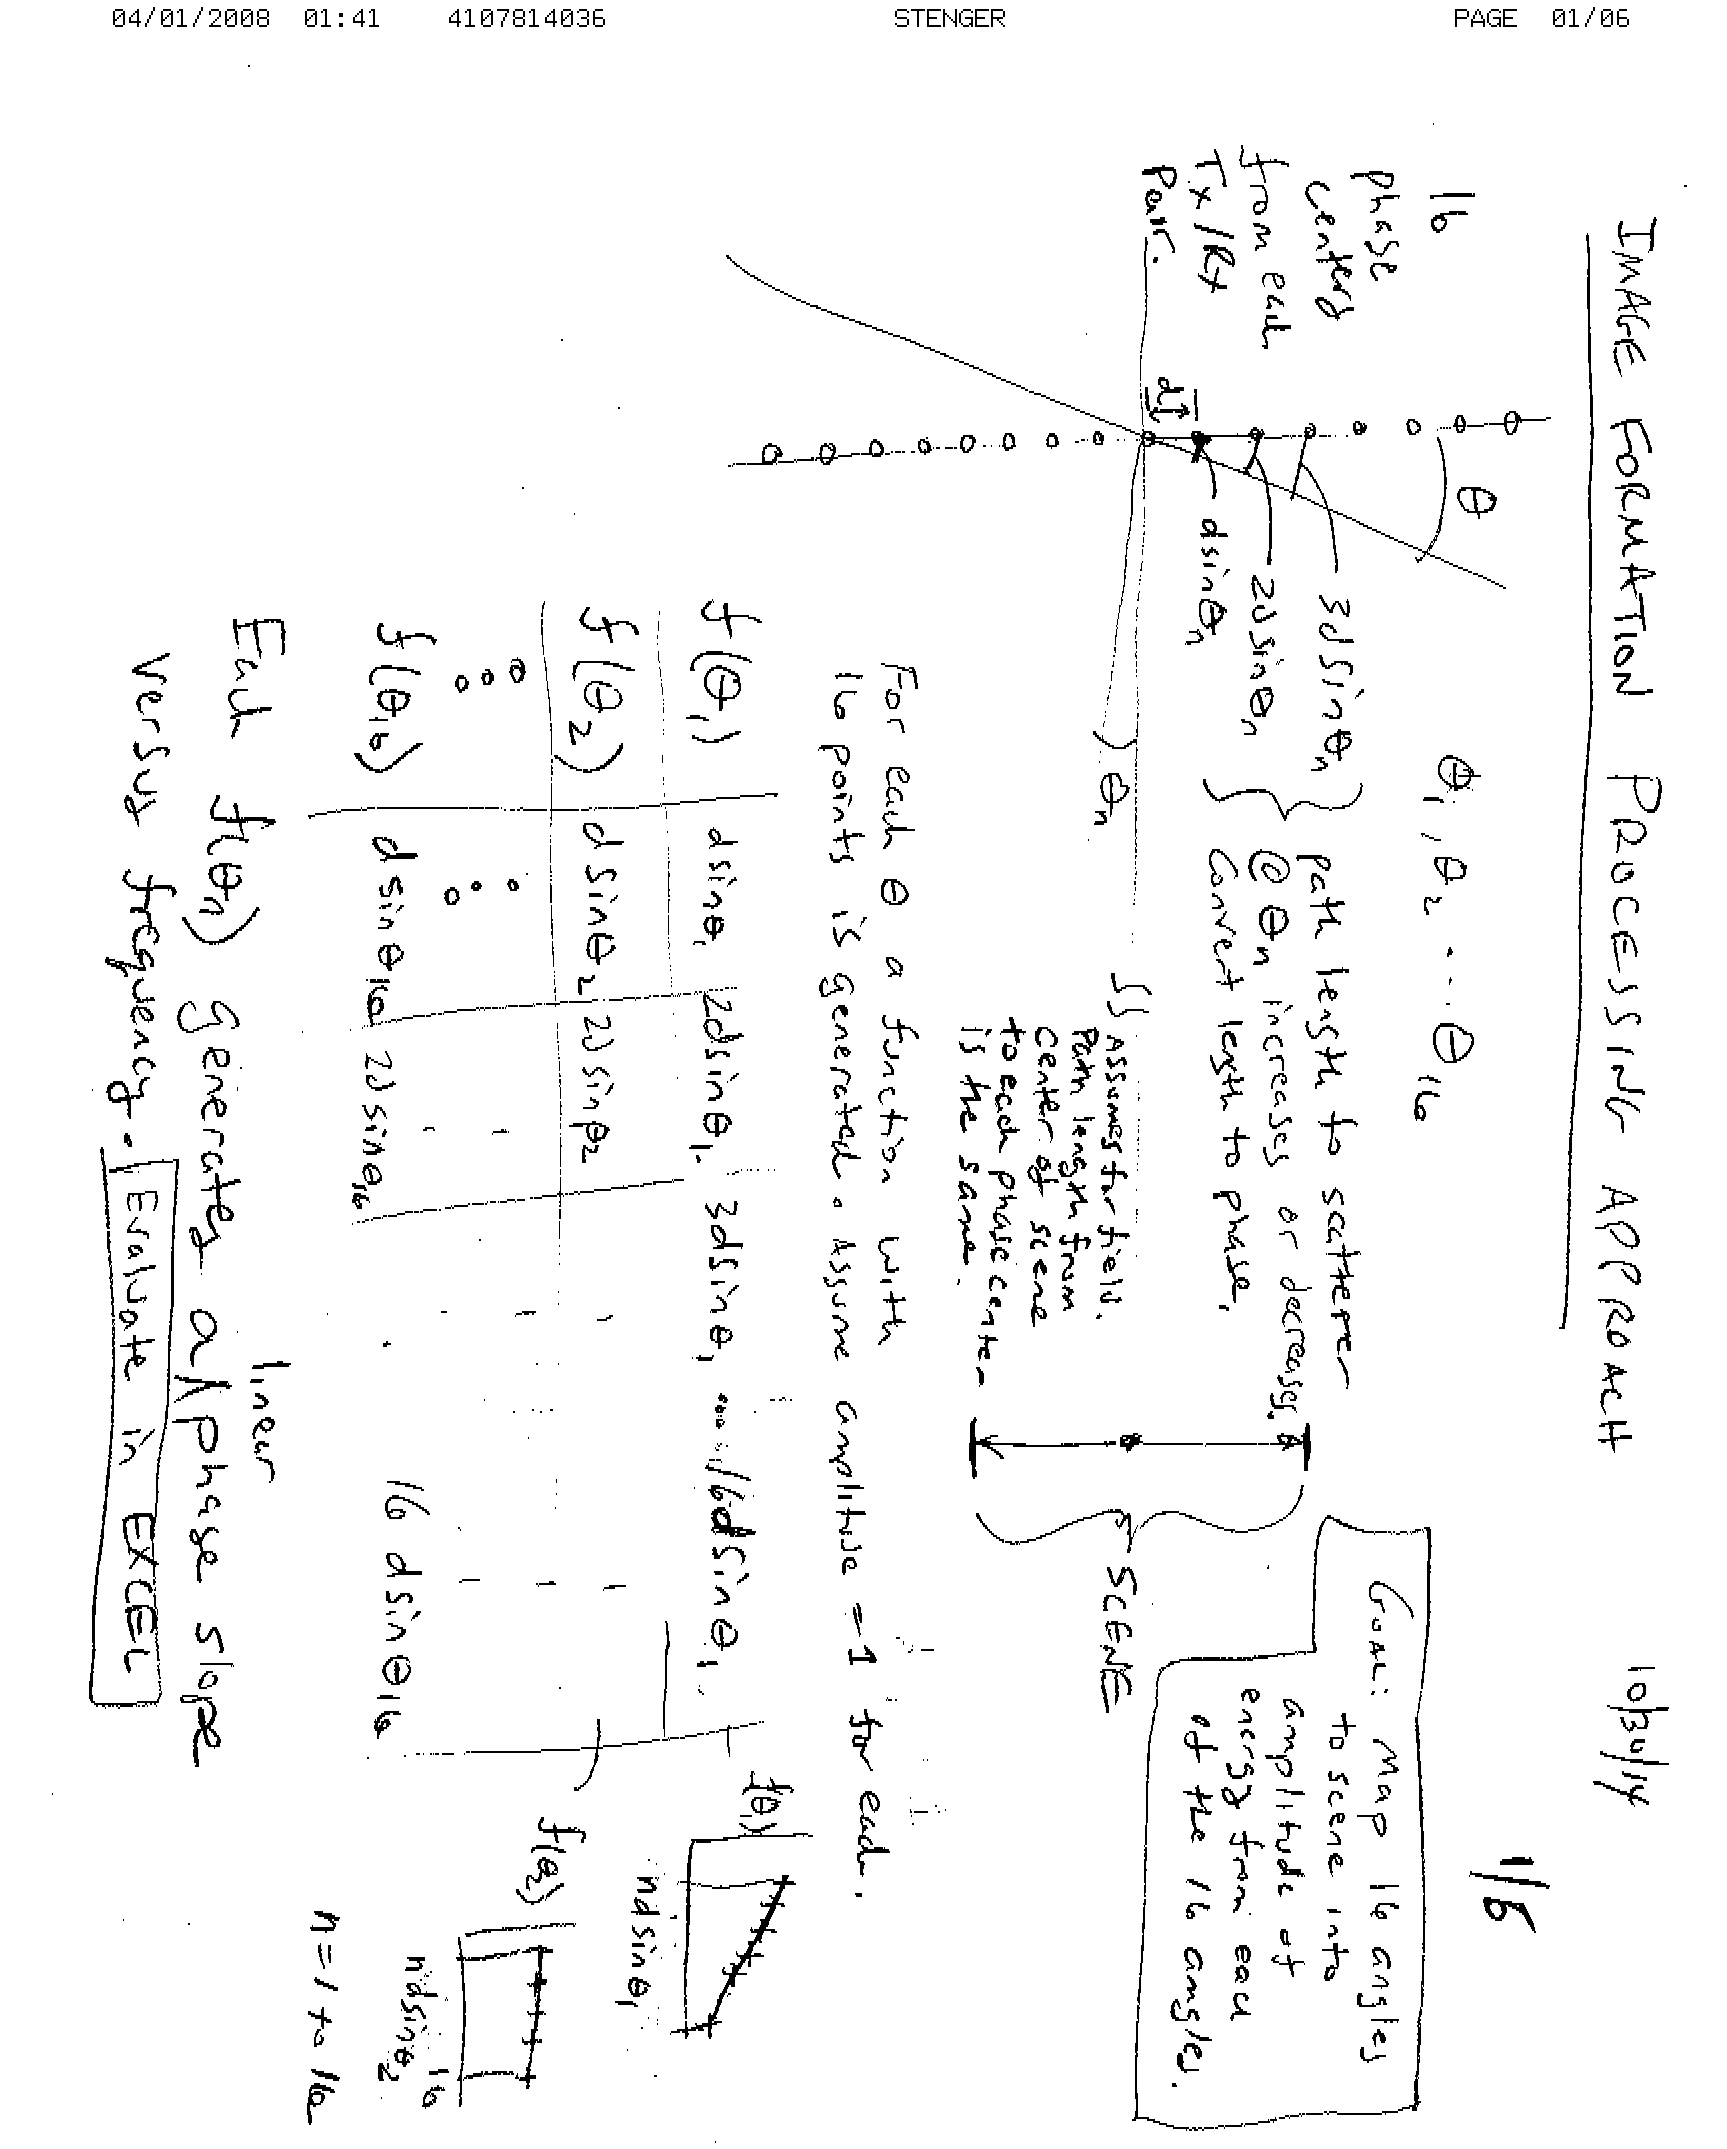 04/01/2008 01:41 4107814036 STENGER PAGE 01/06
IMAGE FORMATION PROCESSING APPROACH 10/30/14
1/6
16
phase
centers
from each
Tx/Rx
Pair.
d
θ
θ₁, θ₂ ... θ₁₆
3dsinθₙ
2dsinθₙ
dsinθₙ
θₙ
path length to scatterer
@ θₙ increases or decreases.
Convert length to phase.
Assumes far field.
Path length from
center of scene
to each phase center
is the same.
SCENE
GOAL: Map 16 angles
to scene into
amplitude of
energy from each
of the 16 angles.
For each θ a function with
16 points is generated. Assume amplitude = 1 for each.
f(θ₁) dsinθ₁ 2dsinθ₁ 3dsinθ₁ ... 16dsinθ₁
f(θ₂) dsinθ₂ 2dsinθ₂
f(θ₁₆) dsinθ₁₆ 2dsinθ₁₆ 16dsinθ₁₆
f(θ₁)
ndsinθ₁
f(θ₂)
16
ndsinθ₂
n=1 to 16
linear
Each f(θₙ) generates a phase slope
versus frequency. Evaluate in EXCEL